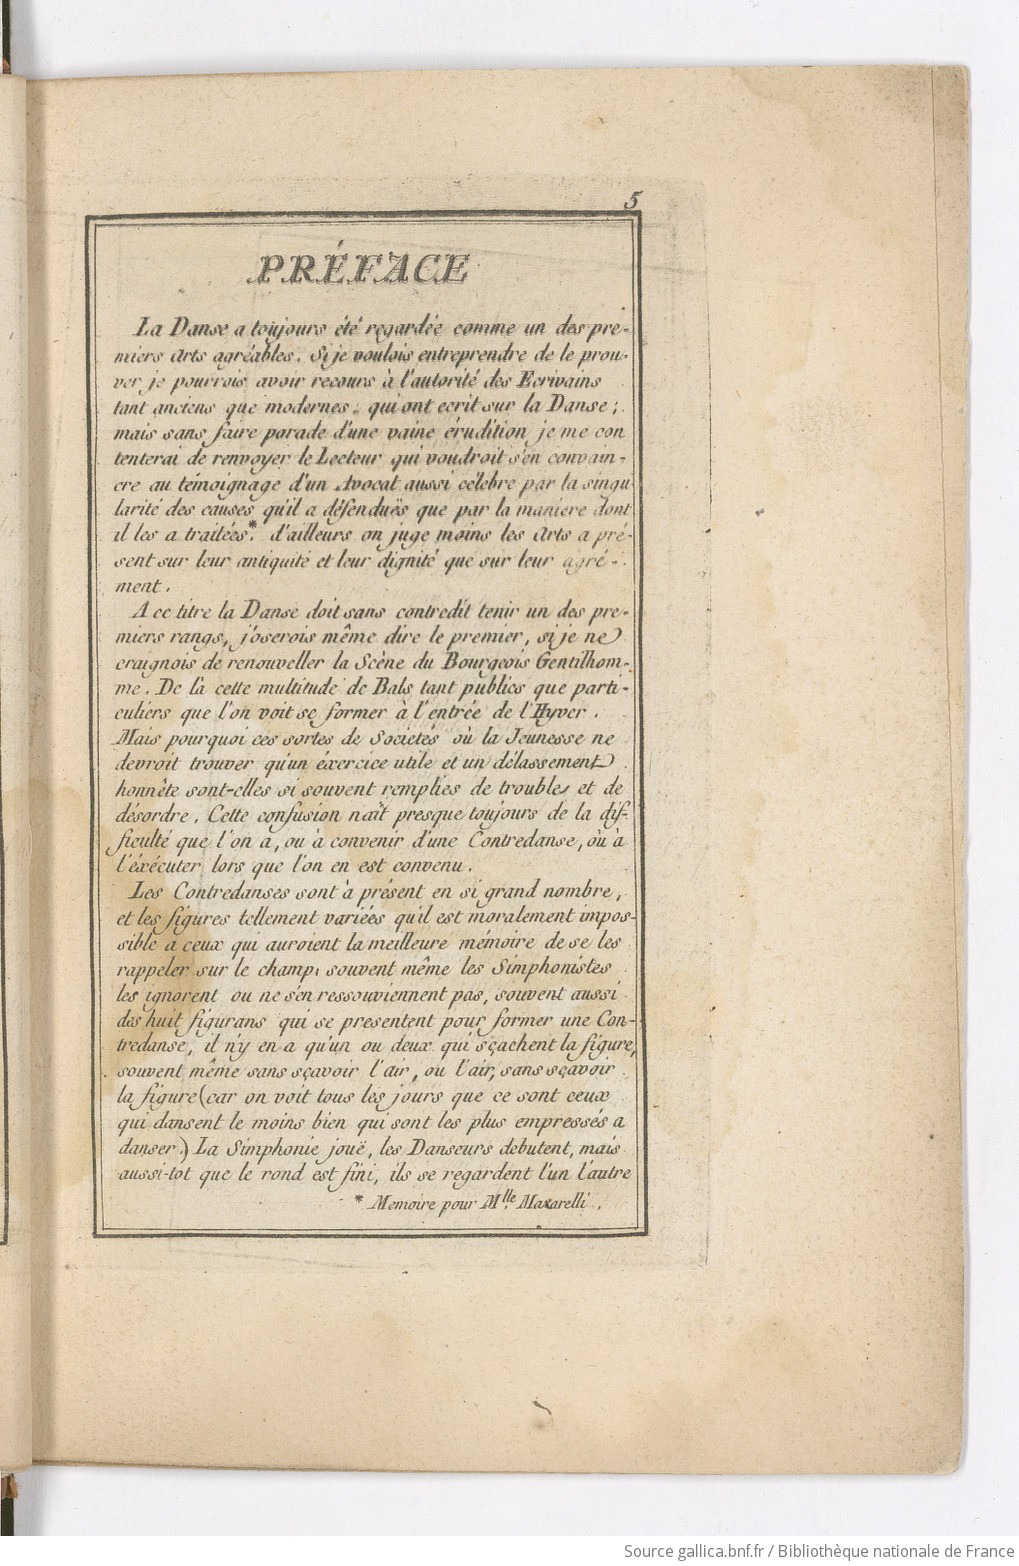 5
PRÉFACE
La Danse a toujours été regardée comme un des pre-
miers Arts agréables. Si je voulois entreprendre de le prou-
ver je pourrois avoir recours à l'autorité des Ecrivains
tant anciens que modernes, qui ont ecrit sur la Danse;
mais sans faire parade d'une vaine érudition je me con
tenterai de renvoyer le Lecteur qui voudroit s'en convain-
cre au témoignage d'un Avocat aussi célébre par la singu
larité des causes qu'il a défenduës que par la maniere dont
il les a traitées.* d'ailleurs on juge moins les Arts a pré-
sent sur leur antiquité et leur dignité que sur leur agré-
ment.
A ce titre la Danse doit sans contredit tenir un des pre-
miers rangs, j'oserois même dire le premier, si je ne
craignois de renouveller la Scène du Bourgeois Gentilhom-
me. De là cette multitude de Bals tant publics que parti-
culiers que l'on voit se former à l'entrée de l'Hyver.
Mais pourquoi ces sortes de Societés où la Jeunesse ne
devroit trouver qu'un éxercice utile et un délassement
honnête sont-elles si souvent remplies de troubles et de
désordre. Cette confusion naît presque toujours de la dif-
ficulté que l'on a, ou à convenir d'une Contredanse, où à
l'éxécuter lors que l'on en est convenu.
Les Contredanses sont à présent en si grand nombre,
et les figures tellement variées qu'il est moralement impos-
sible a ceux qui auroient la meilleure mémoire de se les
rappeler sur le champ, souvent même les Simphonistes
les ignorent ou ne s'en ressouviennent pas, souvent aussi
des huit figurans qui se presentent pour former une Con-
tredanse, il n'y en a qu'un ou deux qui sçachent la figure,
souvent même sans sçavoir l'air, ou l'air, sans sçavoir
la figure (car on voit tous les jours que ce sont ceux
qui dansent le moins bien qui sont les plus empressés a
danser) La Simphonie jouë, les Danseurs debutent, mais
aussi-tot que le rond est fini, ils se regardent l'un l'autre
* Memoire pour M.lle Mazarelli.
Source gallica.bnf.fr / Bibliothèque nationale de France